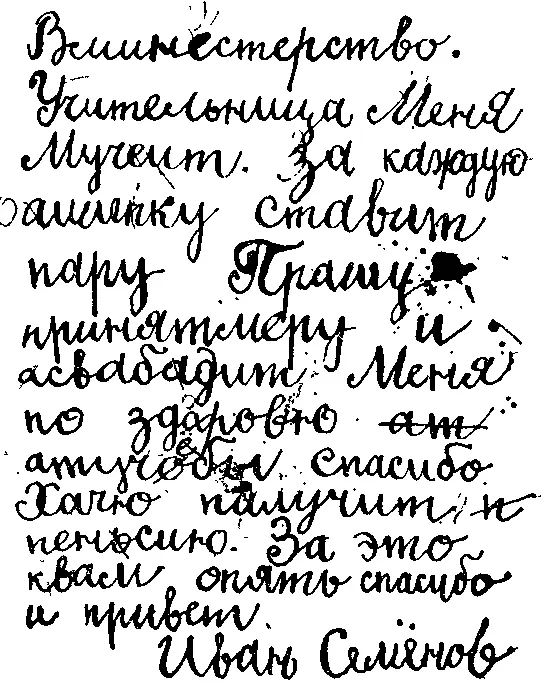 Вминестерство.
Учительница Меня
Мучеит. За каждую
ашипку ставит
пару Прашу
принятмеру и
асвабадит Меня
по здаровю ат
атучобы спасибо
Хачю палучит п
пеньсию. За это
квам опять спасибо
и привет.
Иван Семёнов